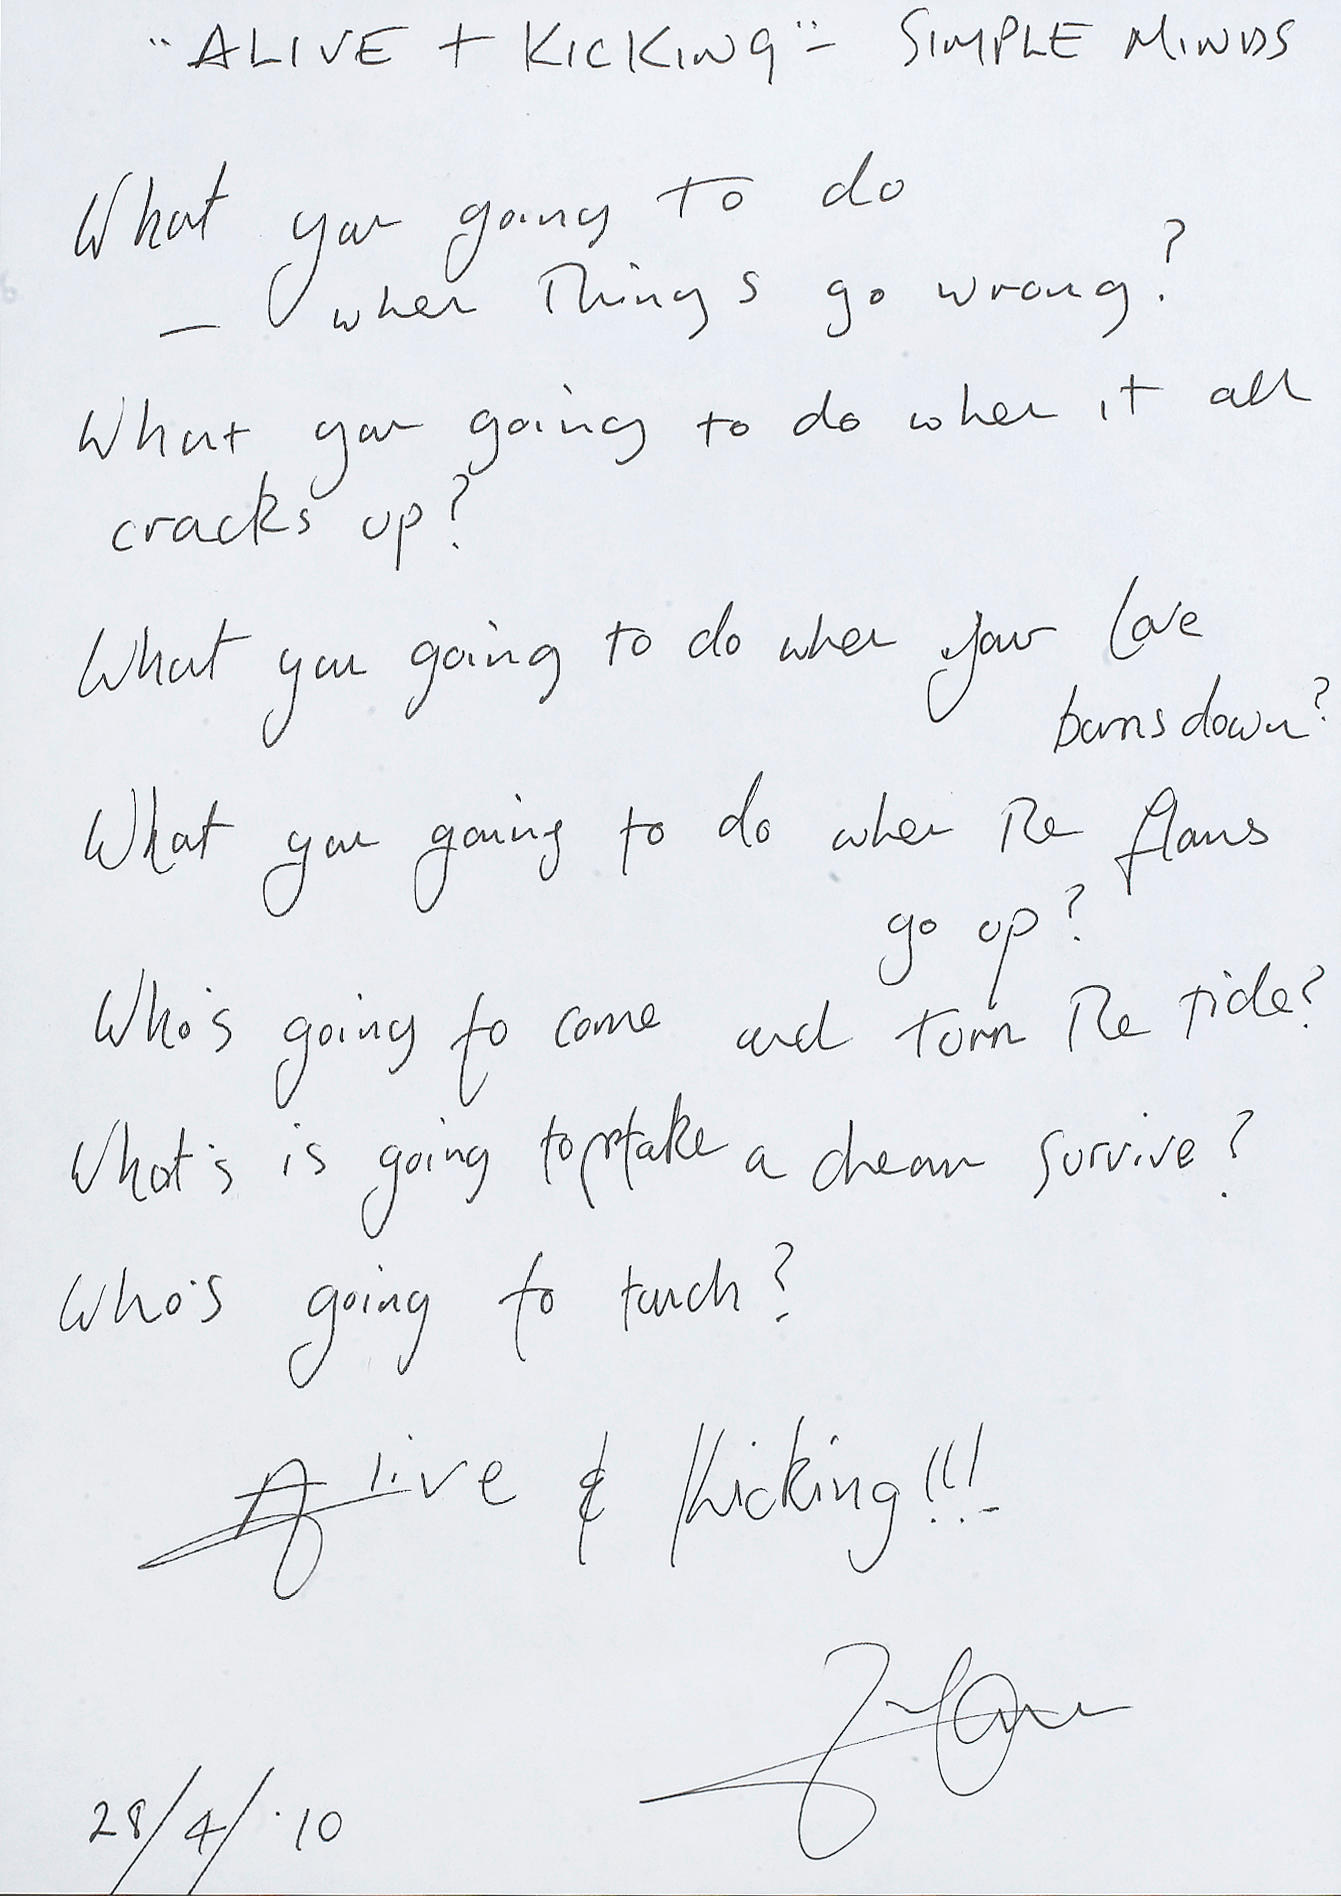 "ALIVE + KICKING" - SIMPLE MINDS
What you going to do
— when Things go wrong?
What you going to do when it all
cracks up?
What you going to do when your love
burns down?
What you going to do when The flams
go up?
Who's going to come and turn The tide?
What's is going to make a dream survive?
Who's going to touch?
Alive & Kicking!!!
28/4/10